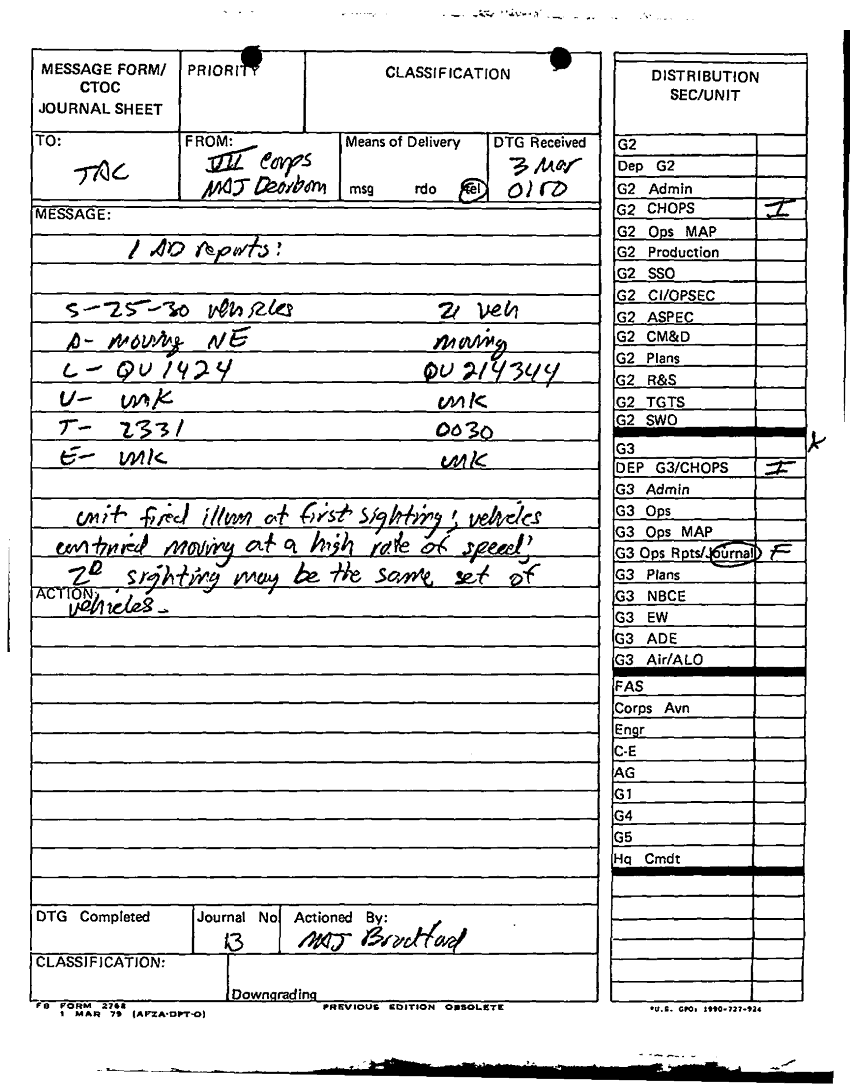 MESSAGE FORM/
CTOC
JOURNAL SHEET
PRIORITY
CLASSIFICATION
TO:
TAC
FROM:
VII Corps
MAJ Dearborn
Means of Delivery
msg rdo tel
DTG Received
3 Mar
0150
MESSAGE:
1 AD reports:
S-25-30 vehicles 21 veh
A- moving NE moving
L- QU 1424 QU 214344
U- unk unk
T- 2331 0030
E- unk unk
unit fired illum at first sighting; vehicles
continued moving at a high rate of speed;
2D sighting may be the same set of
ACTION:
vehicles.
DTG Completed
Journal No
13
Actioned By:
MAJ
CLASSIFICATION:
Downgrading
FB FORM 2768
1 MAR 79 (AFZA-DPT-O)
PREVIOUS EDITION OBSOLETE
DISTRIBUTION
SEC/UNIT
G2
Dep G2
G2 Admin
G2 CHOPS I
G2 Ops MAP
G2 Production
G2 SSO
G2 CI/OPSEC
G2 ASPEC
G2 CM&D
G2 Plans
G2 R&S
G2 TGTS
G2 SWO
G3
DEP G3/CHOPS I
G3 Admin
G3 Ops
G3 Ops MAP
G3 Ops Rpts/Journal F
G3 Plans
G3 NBCE
G3 EW
G3 ADE
G3 Air/ALO
FAS
Corps Avn
Engr
C-E
AG
G1
G4
G5
Hq Cmdt
*U.S. GPO: 1990-727-924